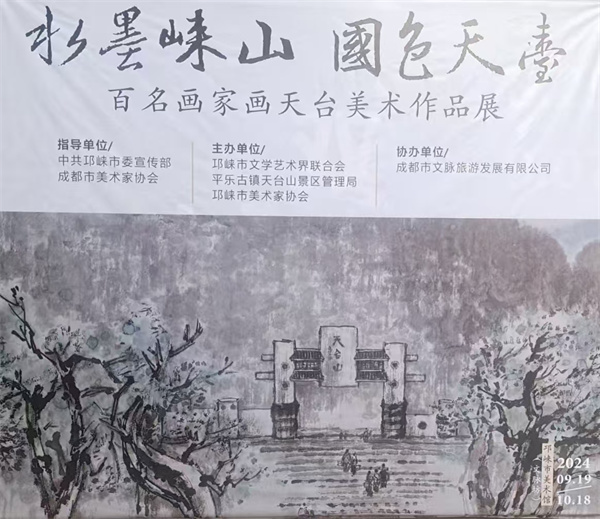 水墨崃山 國色天臺
百名画家画天台美术作品展
指导单位/
中共邛崃市委宣传部
成都市美术家协会
主办单位/
邛崃市文学艺术界联合会
平乐古镇天台山景区管理局
邛崃市美术家协会
协办单位/
成都市文脉旅游发展有限公司
天台山
邛崃市美术馆
2024
09.19
10.18